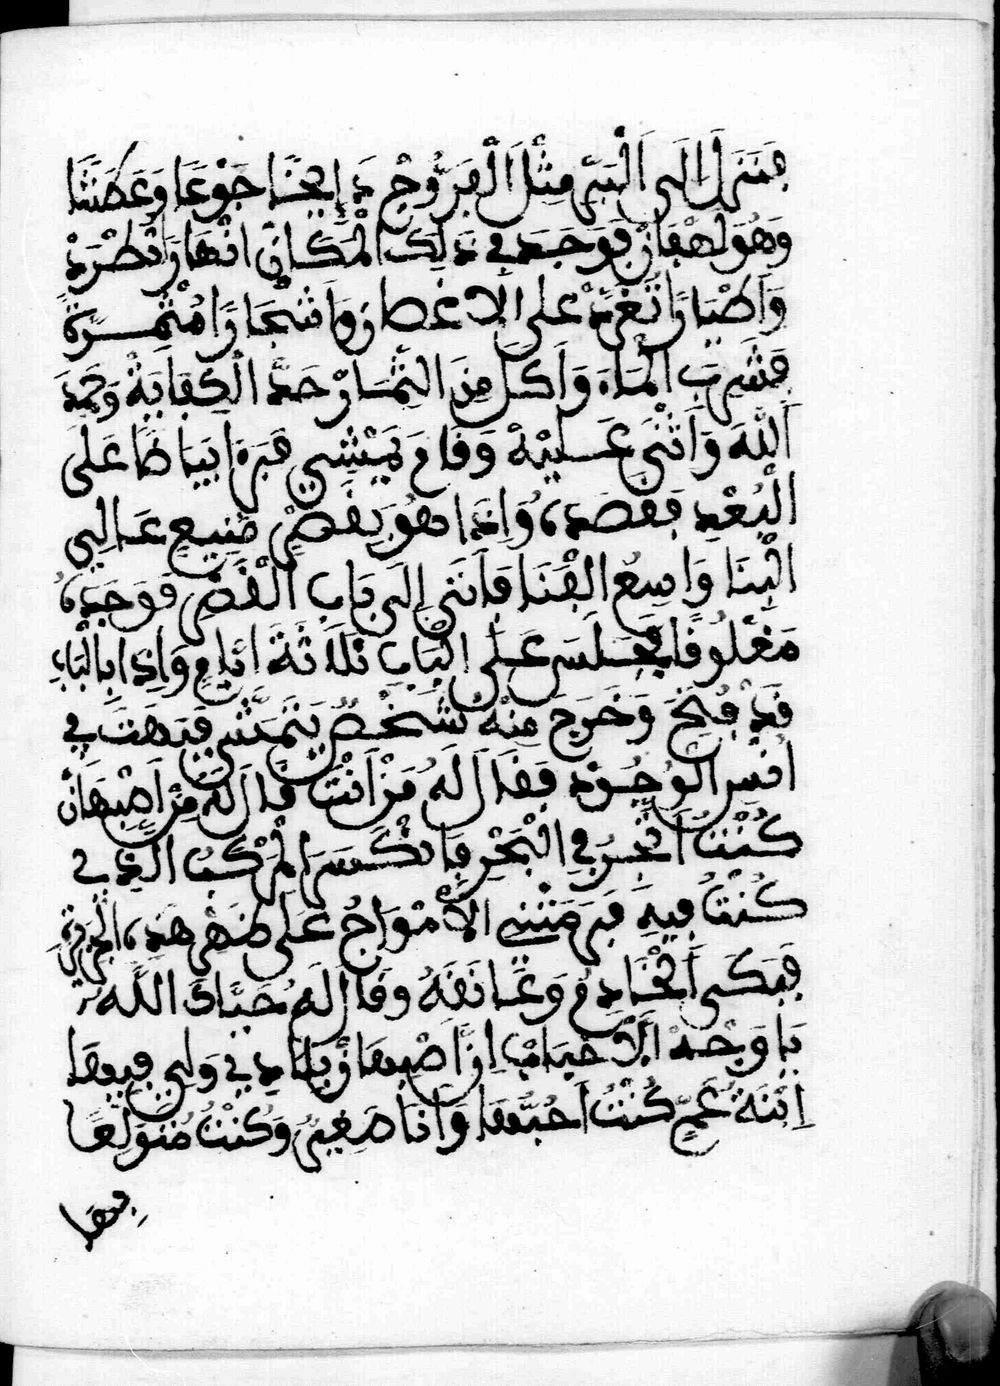 فَنَزَلَ الَى الْبَرِّ مِثْلَ الْفَرُّوجِ دَايِخًا جَوْعَا وَعَطَشًا
وَهُوَ لَهْفَانْ فوَجَدَ في ذلِكَ الْمَكَانِ انْهَارًا تْطْرَدْ
وَاَطْيَارًا تْغَرِّدْ على الاغصان وَاَشْجَارًا مُثْمِرَة
فَشَرِبَ الْمَاءَ وَاَكَلَ مِنَ الثِّمَارْ حَدَّ الْكِفَايَةْ وَحَمِدَ
اَللّهَ وَاَثْنَى عَلَيْهْ وَقَامَ يَمْشِي فَرَءا بَيَاضًا عَلَى
الْبُعْدِ فَقصَدَهُ وَاِذَا هُوَ بِقَصْرٍ مَنِيعٍ عَالِي
الْبِنَا وَاسِعِ الْفِنَا فَاَتَى إلى بَابِ الْقَصْرِ فَوَجَدَهُ
مَغْلُوقًا فَجَلَسَ عَلَى الْبَابِ ثَلَاثَةَ ايَّامٍ وَاِذَا بِالْبَابِ
قَدْ فُتِحَ وَخَرَجَ مِنْهُ شَخْصٌ يَتَمَشَّى فَبَهَتَ في
انْسِ الْوُجُودْ فَقَالَ لَهُ مَنْ اَنْتَ قَالَ لَهُ مِنْ اَصْبِهَانْ
كُنْتُ اَتْجُرُ في الْبَحْرِ فَانْكَسَرَ الْمَرْكَبُ الذِي
كُنْتُ فِيهِ فَرَمَتْنِي الْاَمْوَاجُ عَلَى ظَهْرِ هَذِهِ الْجَزِيرَة
فَبَكَى الْخَادِمُ وَعَانَقَهُ وقَالَ لَهُ حَيَّاكَ اللَّه
يَا وَجْهَ الْاَحْبَابْ اِنَّ اَصْبِهَانْ بَلَادِي وَلِي فِيهَا
اِبْنَةُ عَمٍّ كُنْتُ احِبُّهَا وَانَا صَغِيرٌ وَكُنْتُ مُتَوَلِّعًا
بِهَا